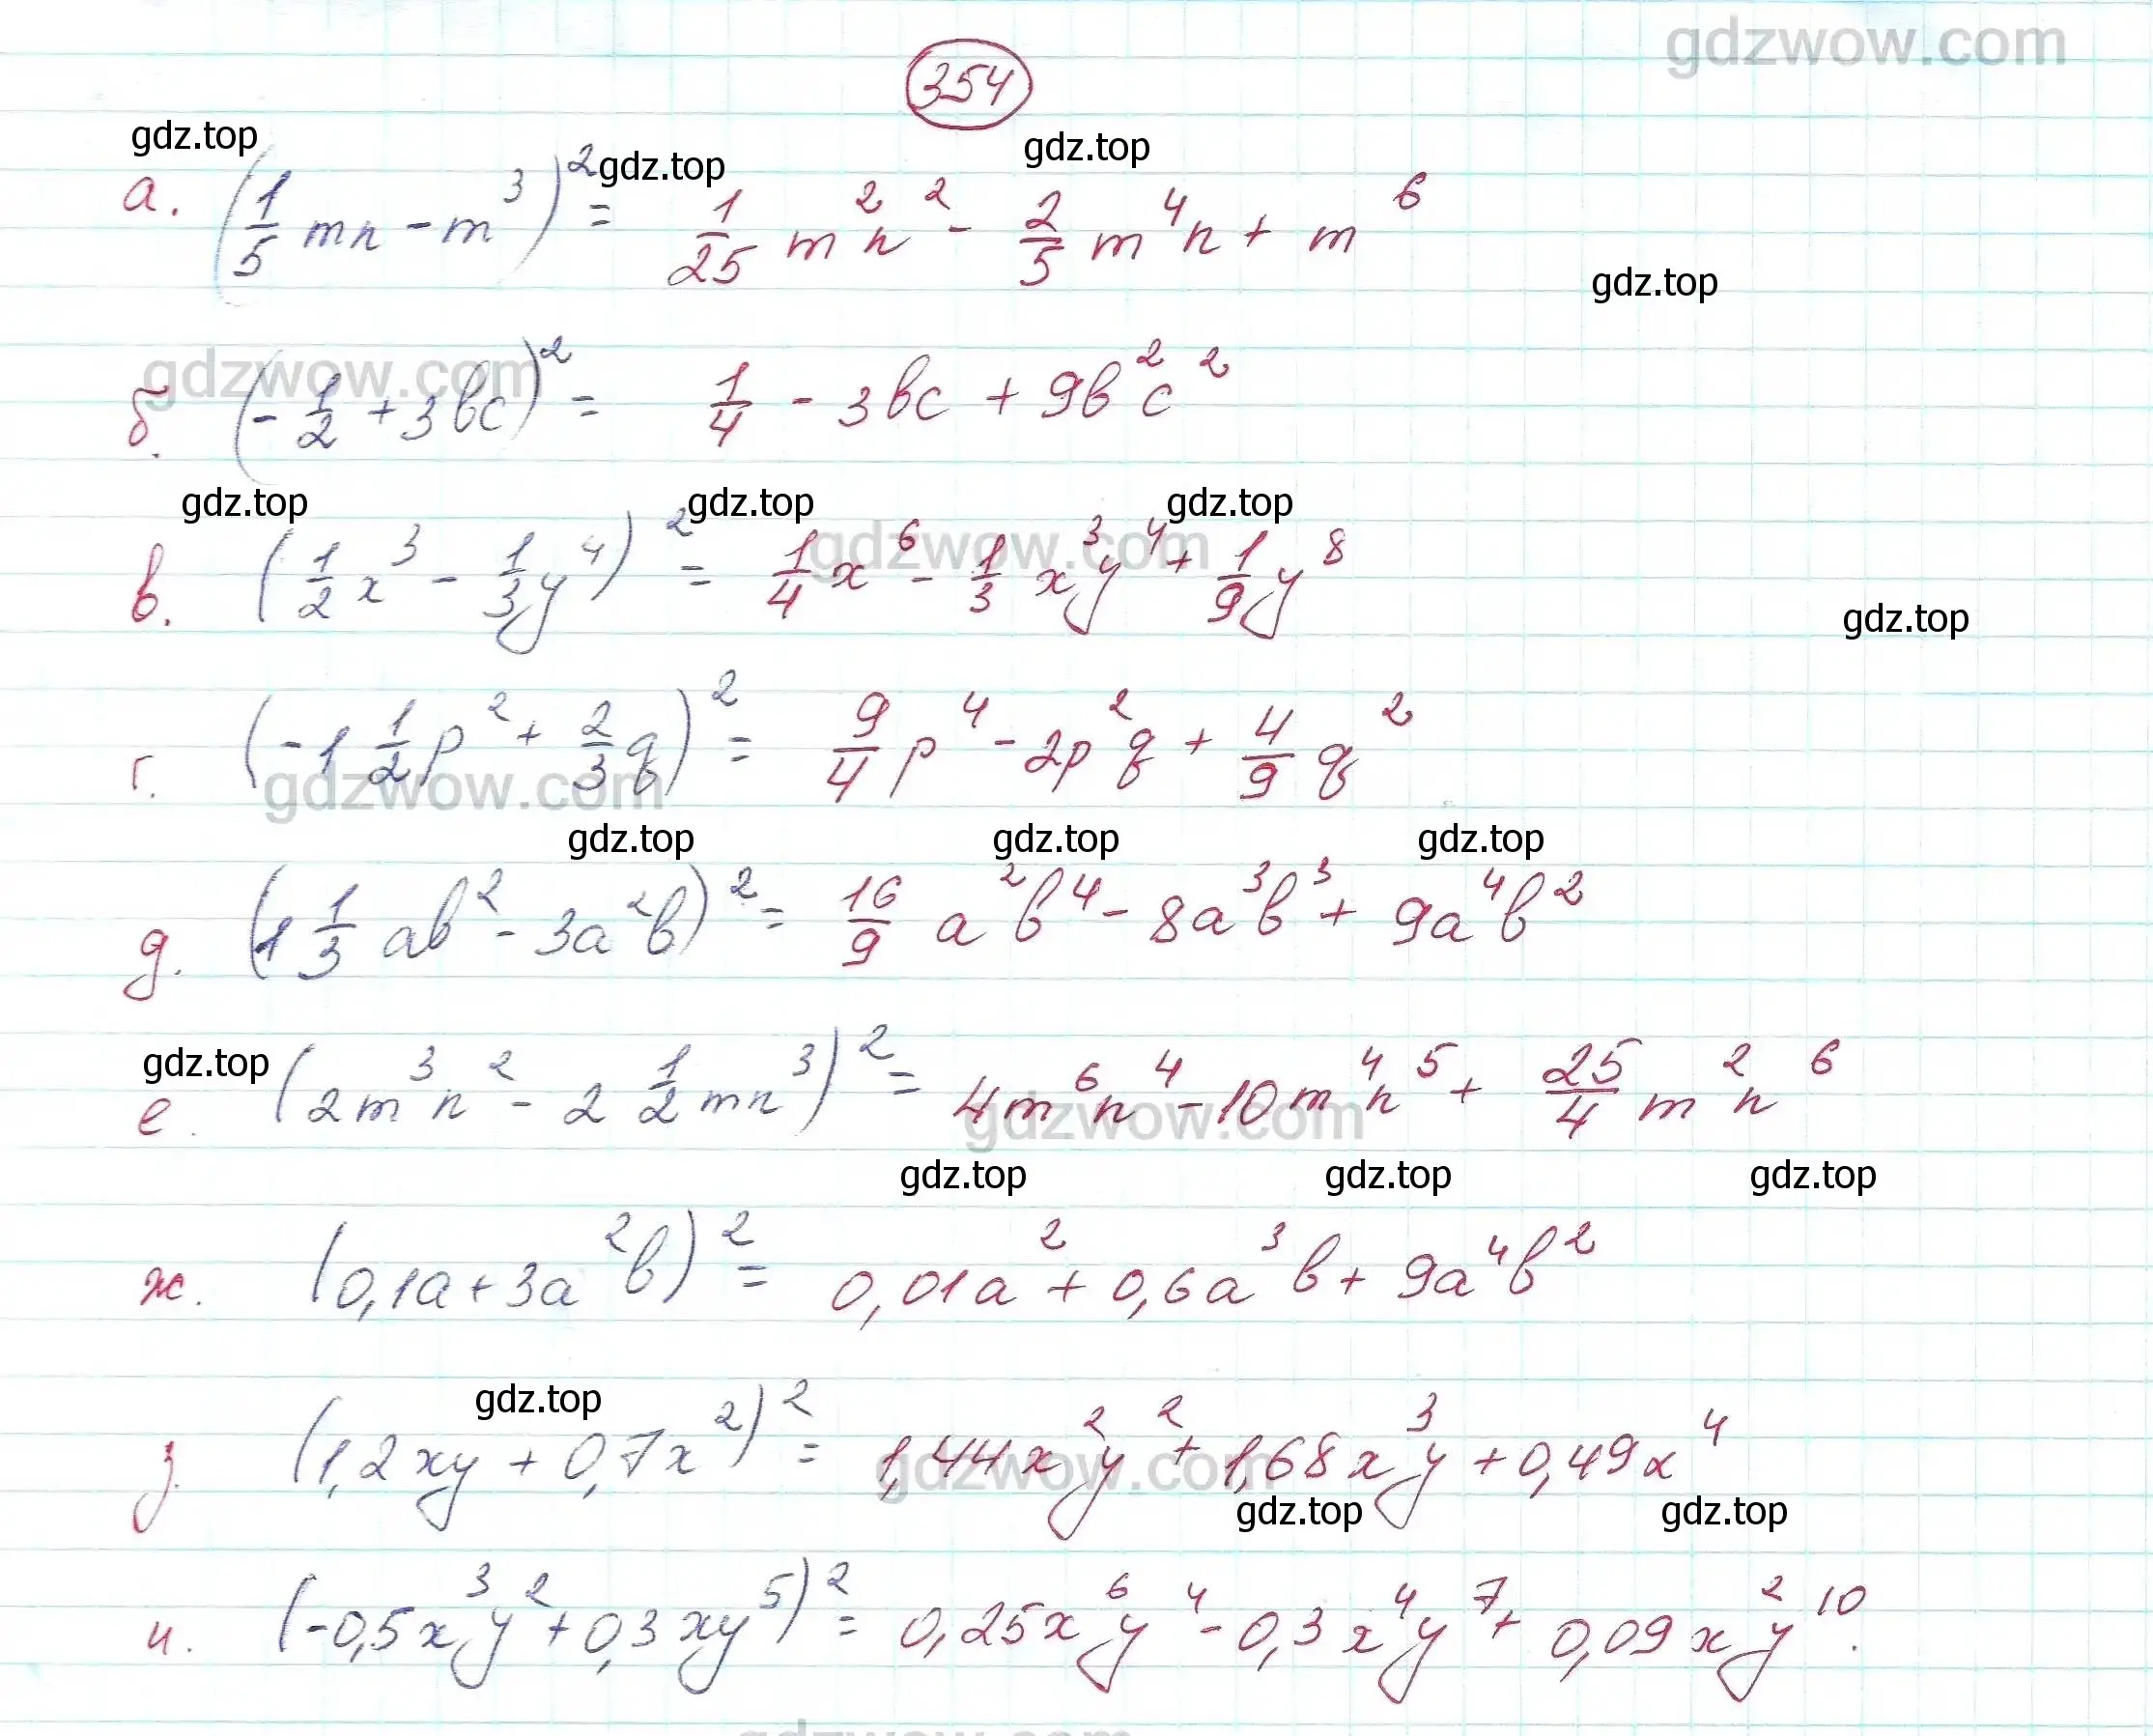 gdzwow.com
354
gdz.top gdz.top gdz.top
а. (1/5 mn - m³)² = 1/25 m²n² - 2/5 m⁴n + m⁶
gdz.top
gdzwow.com
б. (-1/2 + 3bc)² = 1/4 - 3bc + 9b²c²
gdz.top gdz.top gdz.top
gdzwow.com
в. (1/2 x³ - 1/3 y⁴)² = 1/4 x⁶ - 1/3 x³y⁴ + 1/9 y⁸
gdz.top
г. (-1 1/2 p² + 2/3 q)² = 9/4 p⁴ - 2p²q + 4/9 q²
gdzwow.com
gdz.top gdz.top gdz.top
д. (1 1/3 ab² - 3a²b)² = 16/9 a²b⁴ - 8a³b³ + 9a⁴b²
gdz.top
е. (2m³n² - 2 1/2 mn³)² = 4m⁶n⁴ - 10m⁴n⁵ + 25/4 m²n⁶
gdzwow.com
gdz.top gdz.top gdz.top
ж. (0,1a + 3a²b)² = 0,01a² + 0,6a³b + 9a⁴b²
gdz.top
з. (1,2xy + 0,7x²)² = 1,44x²y² + 1,68x³y + 0,49x⁴
gdzwow.com
gdz.top gdz.top
и. (-0,5x³y² + 0,3xy⁵)² = 0,25x⁶y⁴ - 0,3x⁴y⁷ + 0,09x²y¹⁰.
gdzwow.com